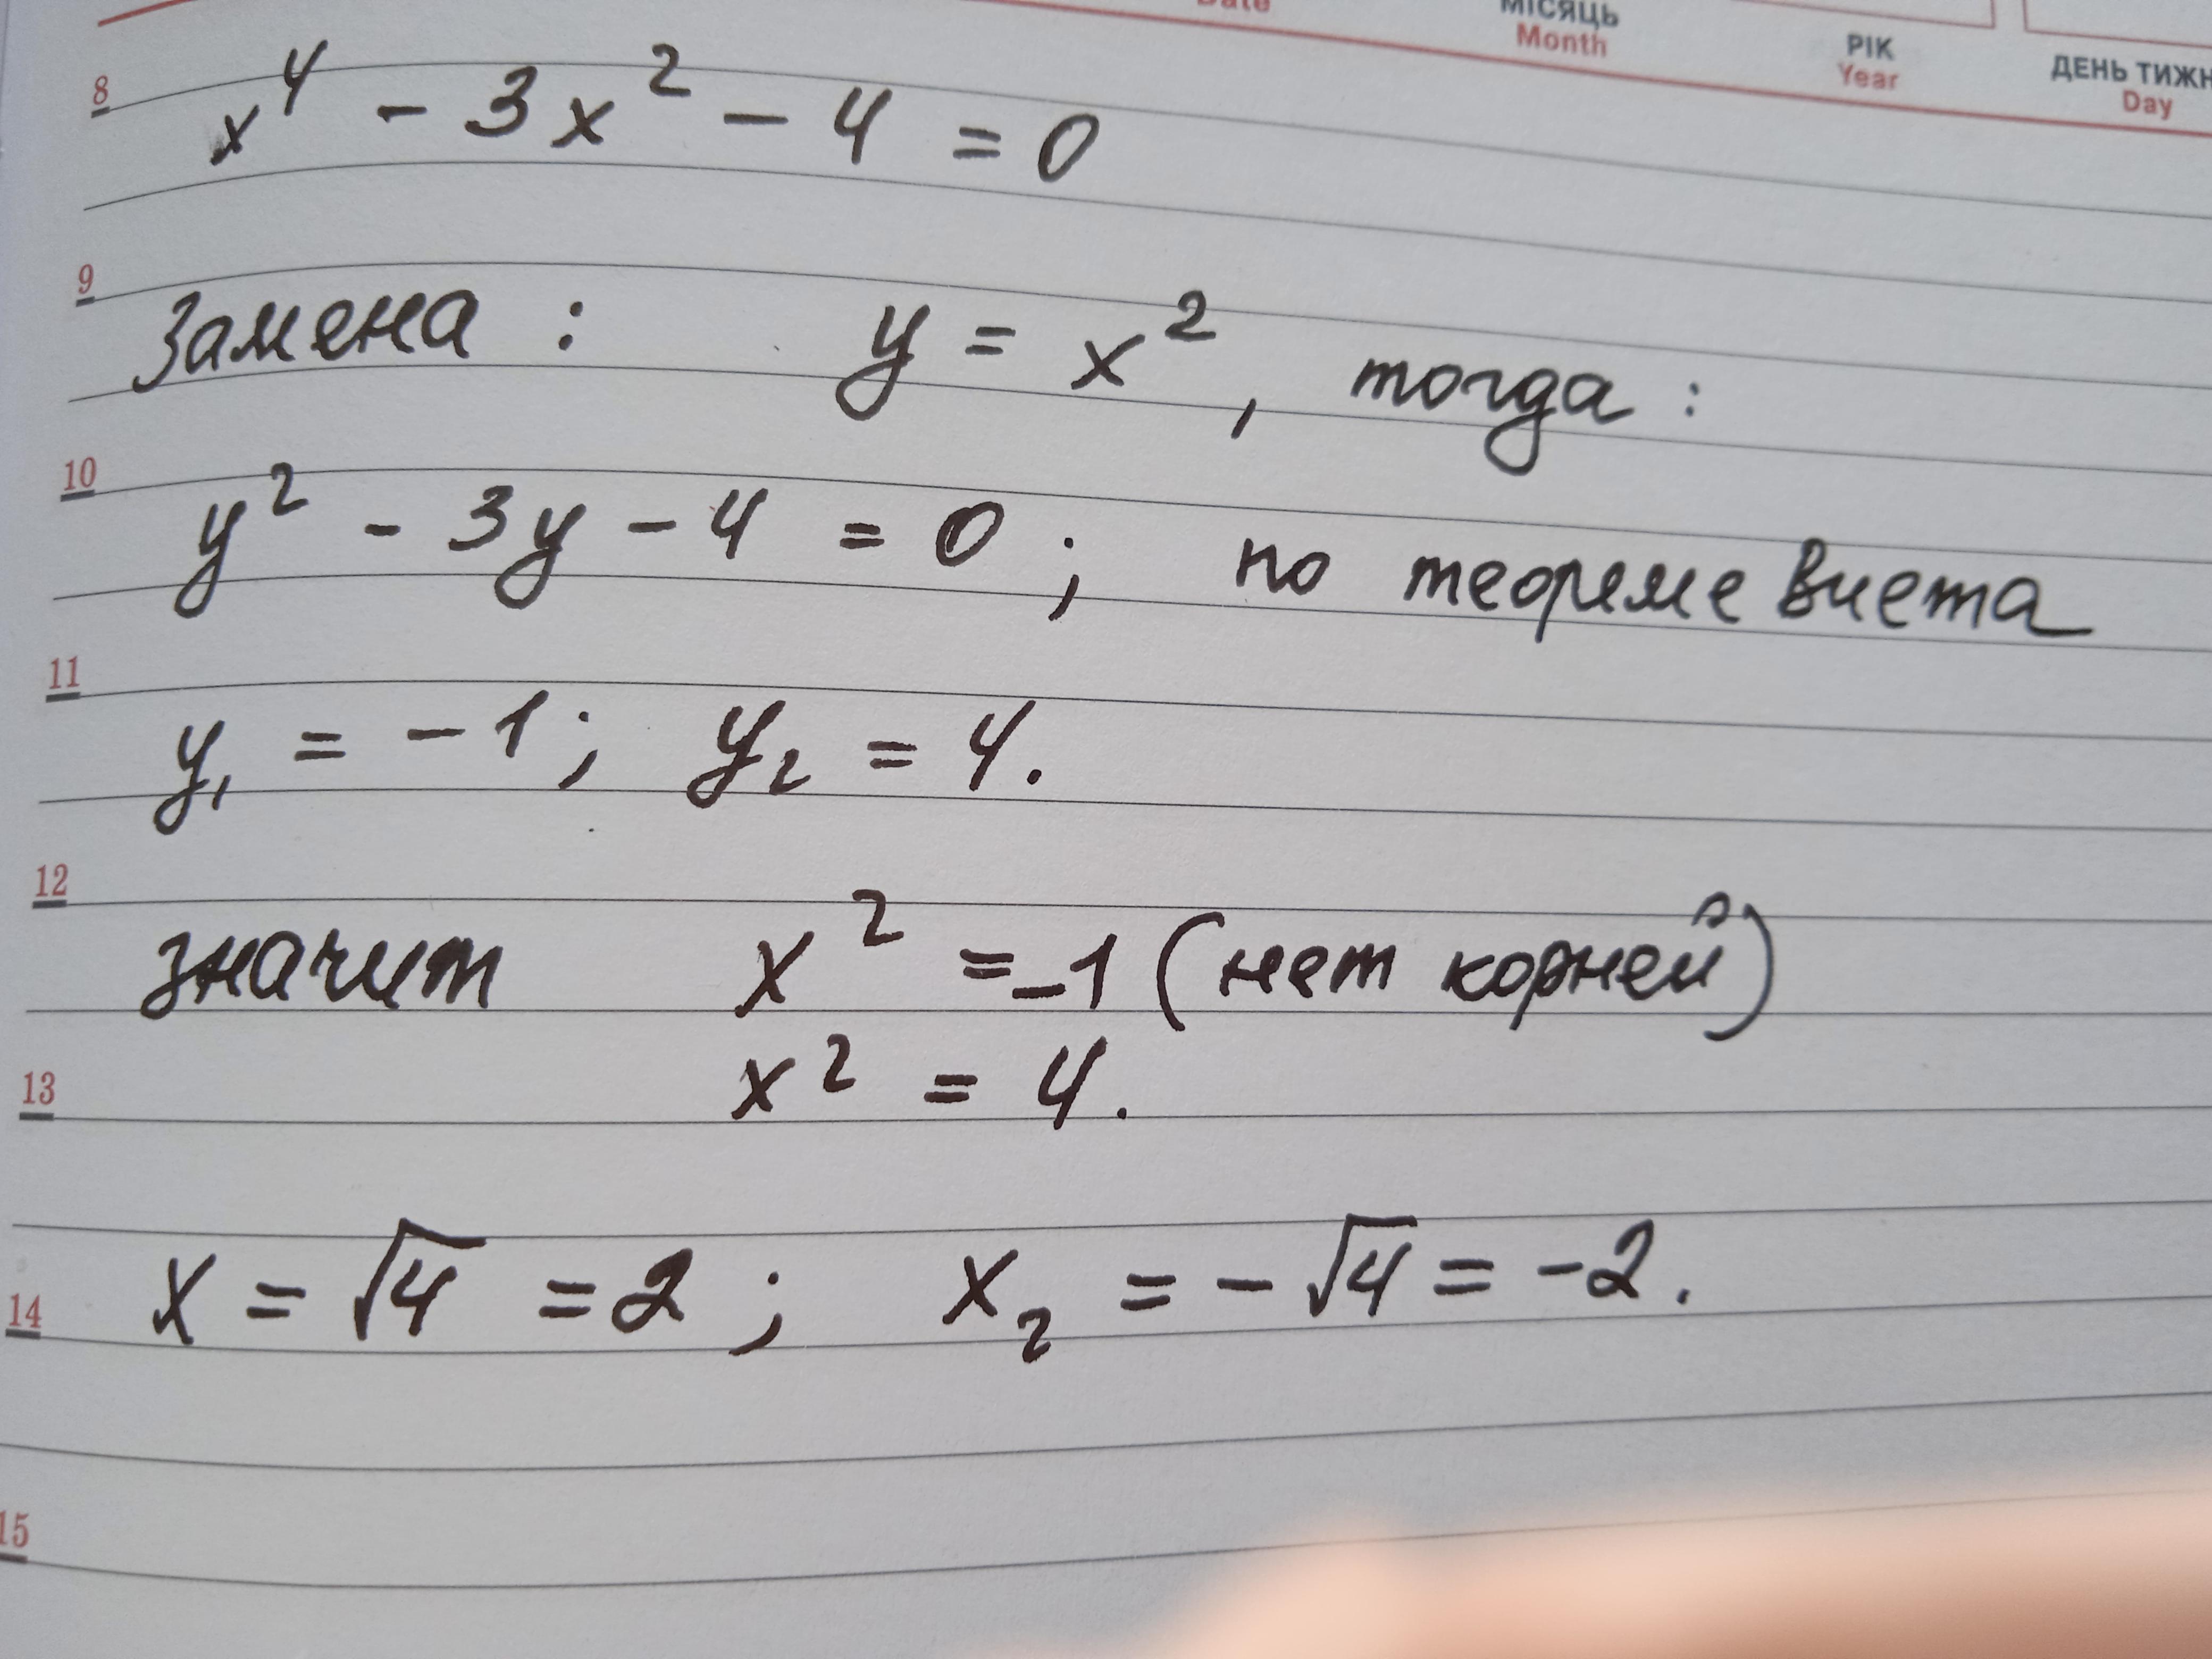 Date МІСЯЦЬ Month РІК Year ДЕНЬ ТИЖН Day
8 x⁴ - 3x² - 4 = 0
9 Замена : y = x², тогда :
10 y² - 3y - 4 = 0 ; по теореме Виета
11 y₁ = -1; y₂ = 4.
12 значит x² = -1 (нет корней)
13 x² = 4.
14 x = √4 = 2 ; x₂ = -√4 = -2.
15